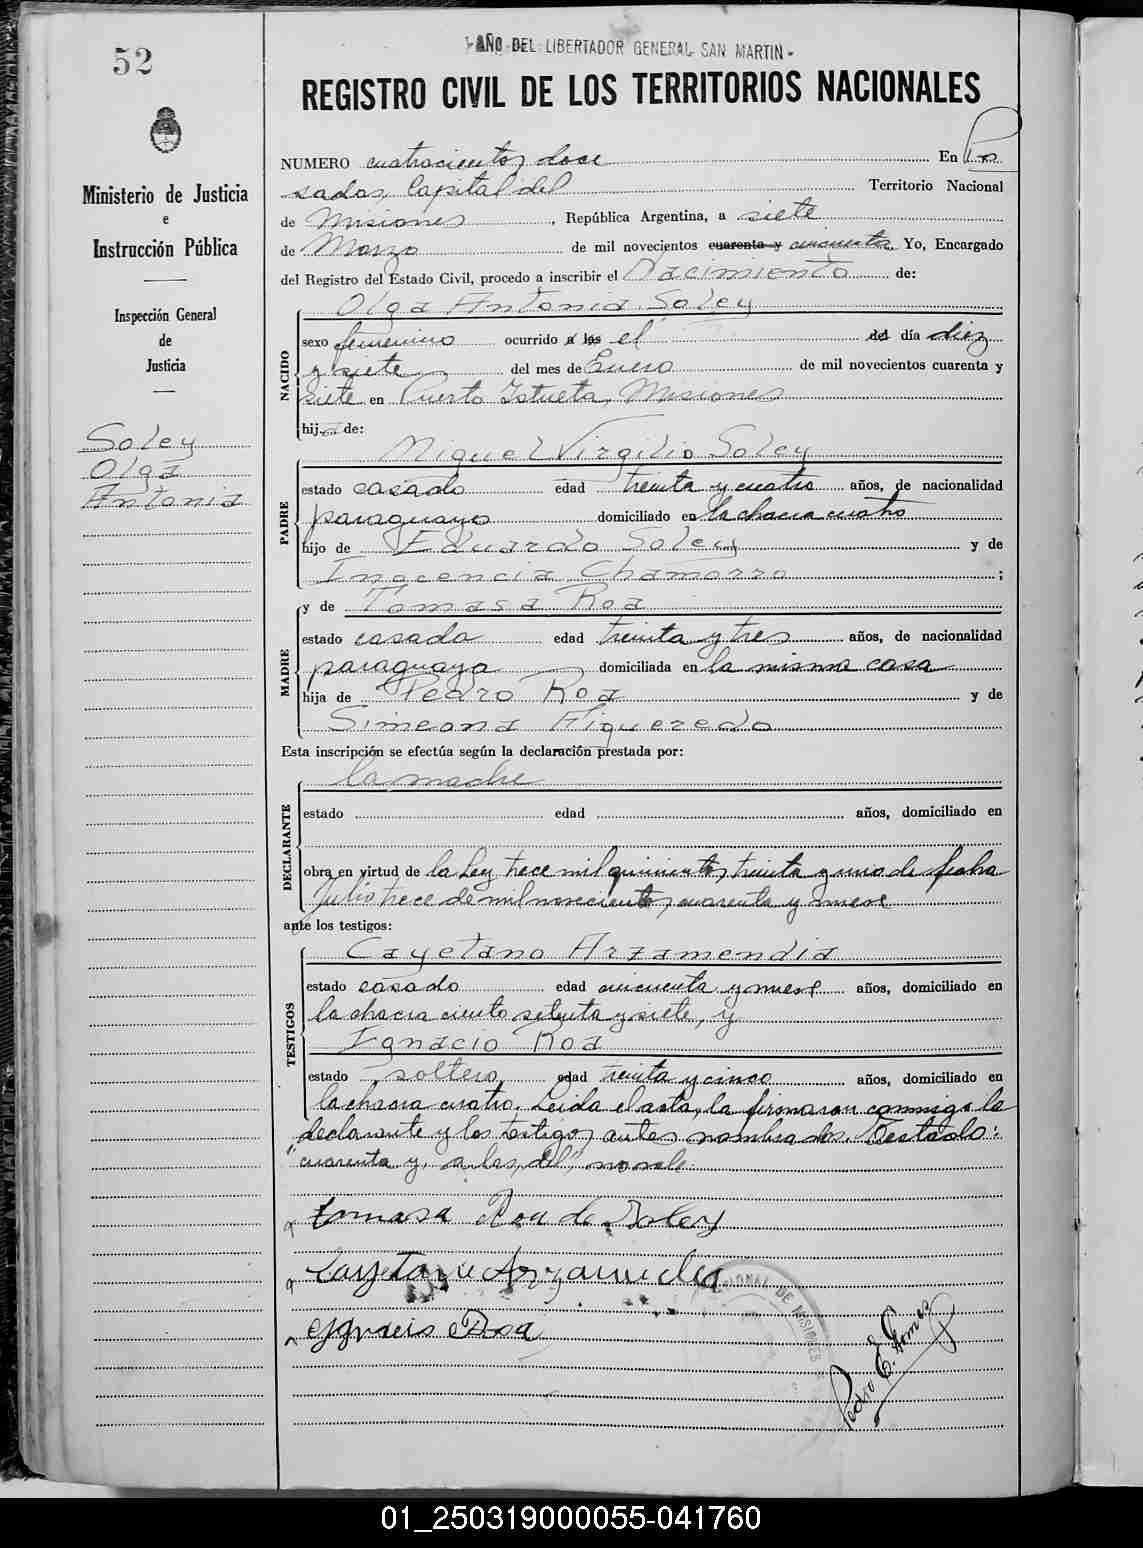 52
AÑO DEL LIBERTADOR GENERAL SAN MARTIN
REGISTRO CIVIL DE LOS TERRITORIOS NACIONALES
Ministerio de Justicia
e
Instrucción Pública
Inspección General
de
Justicia
Soley
Olga
Antonia
NUMERO cuatrocientos doce En Po
sadas, Capital del Territorio Nacional
de Misiones, República Argentina, a siete
de Marzo de mil novecientos cuarenta y cincuenta Yo, Encargado
del Registro del Estado Civil, procedo a inscribir el Nacimiento de:
NACIDO
Olga Antonia Soley
sexo femenino ocurrido a las el del día diez
y siete del mes de Enero de mil novecientos cuarenta y
siete en Puerto Istueta, Misiones
hija de:
PADRE
Miguel Virgilio Soley
estado casado edad treinta y cuatro años, de nacionalidad
paraguayo domiciliado en la chacra cuatro
hijo de Eduardo Soley y de
Inocencia Chamorro ;
MADRE
y de Tomasa Roa
estado casada edad treinta y tres años, de nacionalidad
paraguaya domiciliada en la misma casa
hija de Pedro Roa y de
Simeona Figueredo
Esta inscripción se efectúa según la declaración prestada por:
DECLARANTE
la madre
estado edad años, domiciliado en
obra en virtud de la Ley trece mil quinientos treinta y uno de fecha
Julio trece de mil novecientos cuarenta y nueve
ante los testigos:
TESTIGOS
Cayetano Arzamendia
estado casado edad cincuenta y nueve años, domiciliado en
la chacra ciento setenta y siete, y
Ignacio Roa
estado soltero edad treinta y cinco años, domiciliado en
la chacra cuatro. Leida el acta, la firmaron conmigo la
declarante y los testigos antes nombrados. Testado:
"cuarenta y, a las, del" no vale.
tomasa Roa de Soley
Cayetano Arzamendia
Ygnacio Roa
Pedro E. Gomez
01_250319000055-041760